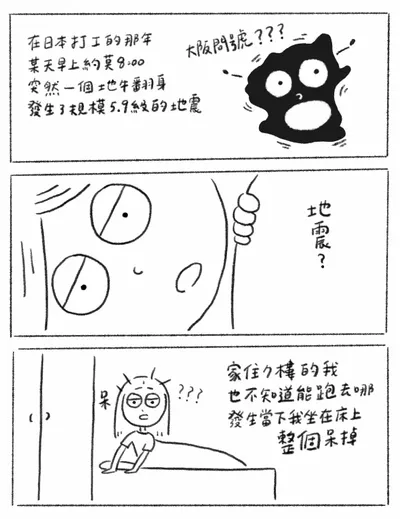 在日本打工的那年
某天早上約莫8:00
突然一個地牛翻身
發生了規模5.9級的地震
大阪問號???
地震?
呆
???
家住7樓的我
也不知道能跑去哪
發生當下我坐在床上
整個呆掉